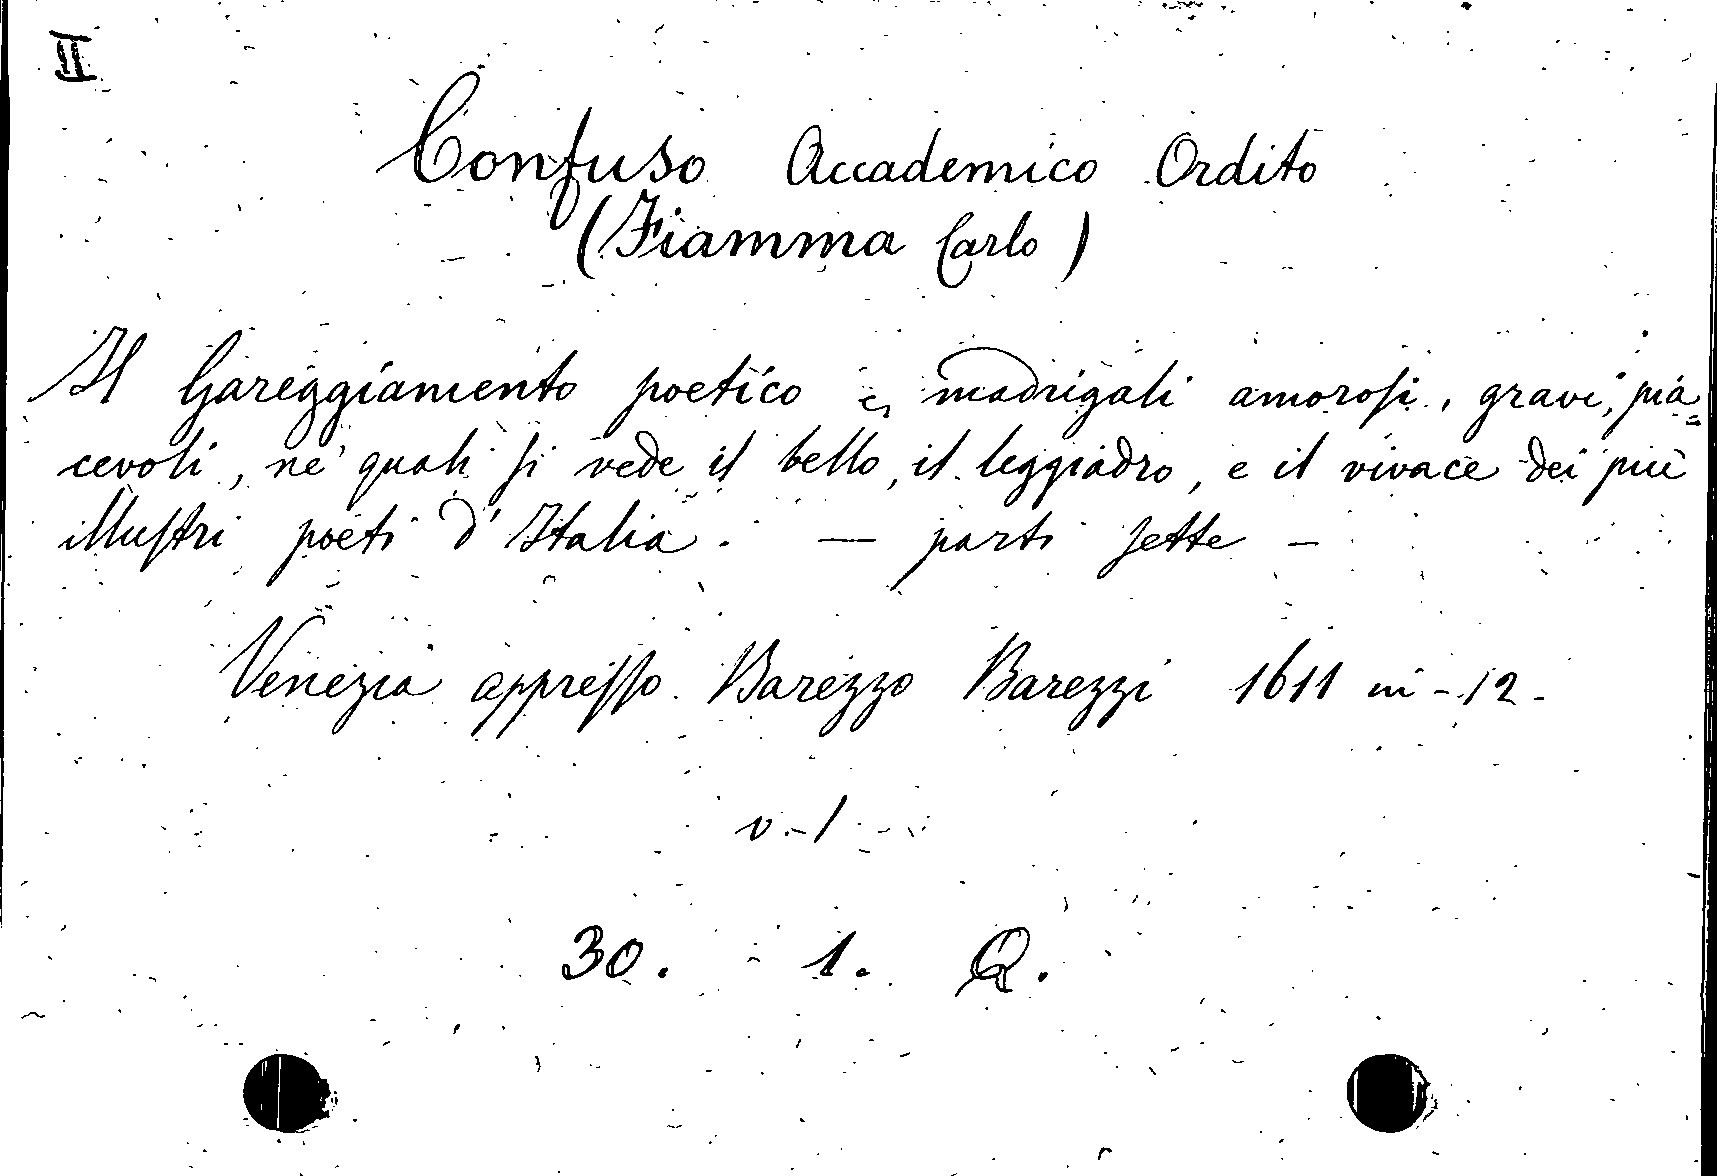 II
Confuso Accademico Ordito
(Fiamma Carlo)
Il Gareggiamento poetico madrigali amorosi, gravi, pia=
cevoli, ne' quali si vede il bello, il leggiadro, e il vivace dei più
illustri poeti d'Italia. — parti sette —
Venezia appresso Barezzo Barezzi 1611 in-12-
v.-1
30. 1. Q.